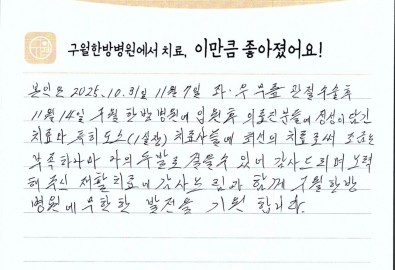 구월한방병원에서 치료, 이만큼 좋아졌어요!
본인은 2025.10.31일 11월 7일 좌·우 무릎 관절수술후
11월 14일 구월 한방병원에 입원후 의료진분들에 정성이 담긴
치료와 특히도수(1실장) 치료사들에 최선의 치료로써 조금은
부족하나마 나의 두발로 걸을수 있어 감사드리며 노력
해 주신 재활치료에 감사드림과 함께 구월한방
병원에 무한한 발전을 기원 합니다.